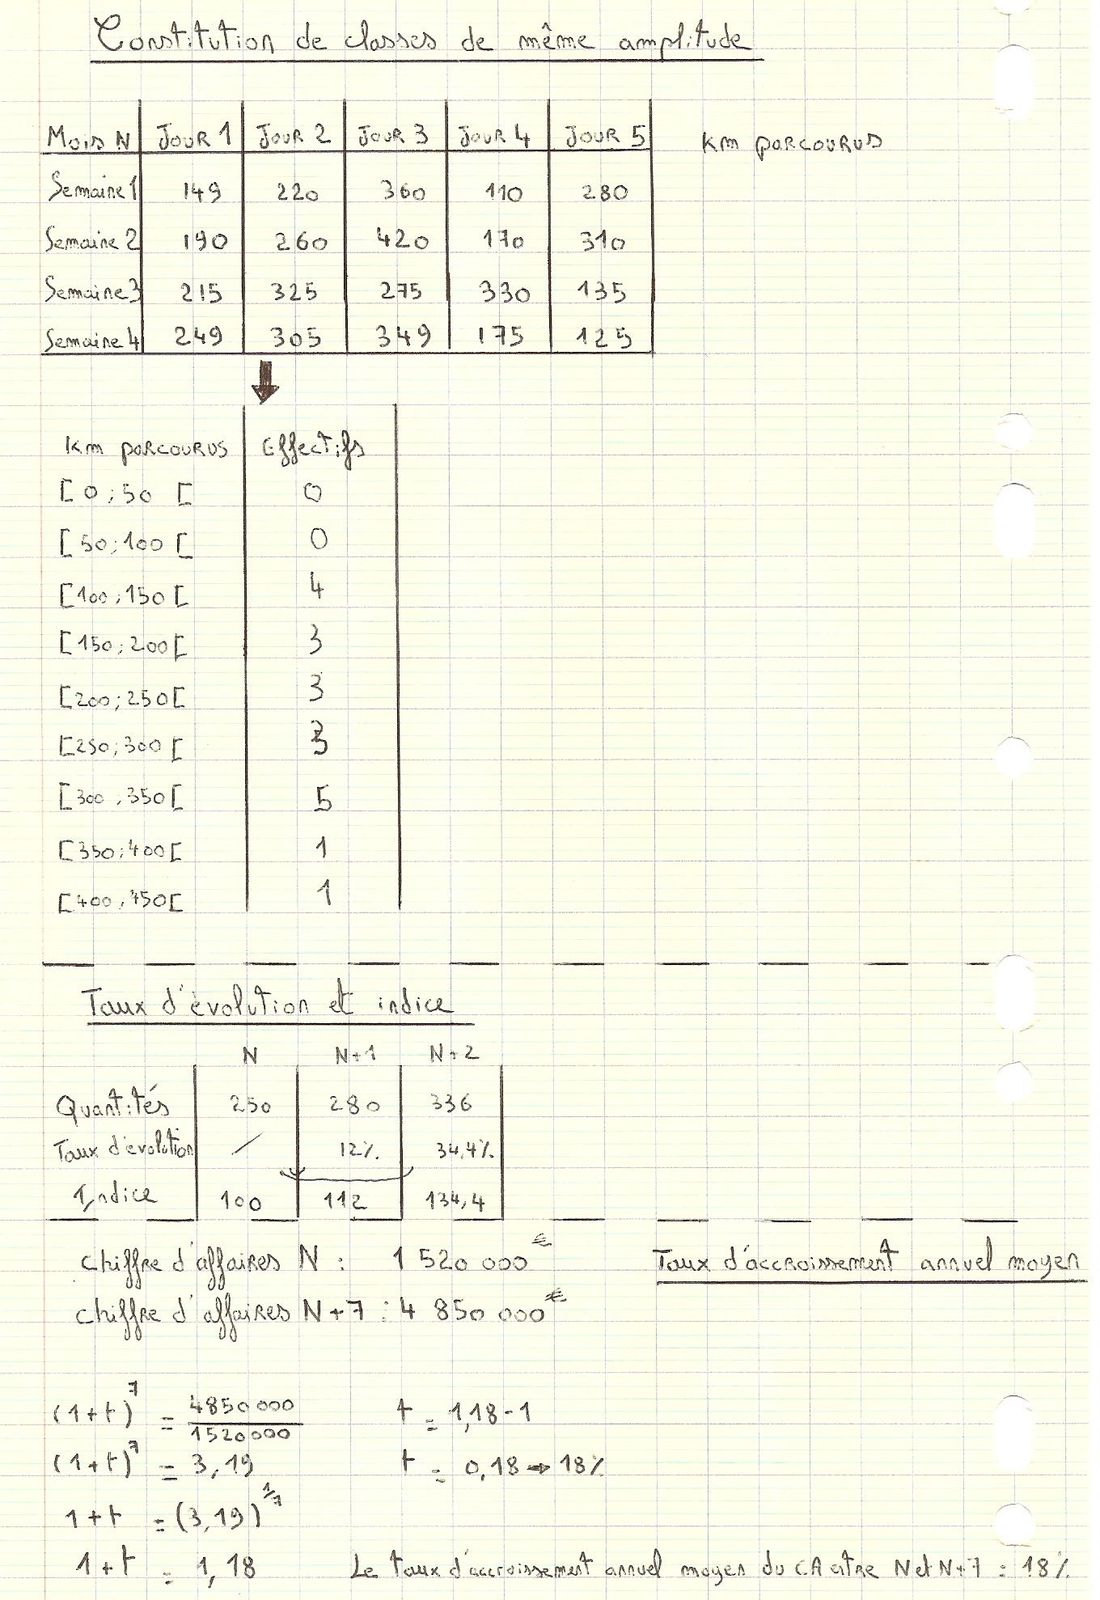 Constitution de classes de même amplitude
Mois N JOUR 1 JOUR 2 JOUR 3 JOUR 4 JOUR 5 km parcourus
Semaine 1 149 220 360 110 280
Semaine 2 190 260 420 170 310
Semaine 3 215 325 275 330 135
Semaine 4 249 305 349 175 125
km parcourus Effectifs
[ 0 ; 50 [ 0
[ 50 ; 100 [ 0
[ 100 ; 150 [ 4
[ 150 ; 200 [ 3
[ 200 ; 250 [ 3
[ 250 ; 300 [ 3
[ 300 ; 350 [ 5
[ 350 ; 400 [ 1
[ 400 ; 450 [ 1
Taux d'évolution et indice
N N+1 N+2
Quantités 250 280 336
Taux d'évolution / 12% 34,4%
Indice 100 112 134,4
chiffre d'affaires N : 1 520 000 € Taux d'accroissement annuel moyen
chiffre d'affaires N+7 : 4 850 000 €
(1+t)^7 = 4850 000 / 1520000 t = 1,18 - 1
(1+t)^7 = 3,19 t = 0,18 → 18%
1+t = (3,19)^1/7
1+t = 1,18 Le taux d'accroissement annuel moyen du CA entre N et N+7 = 18%